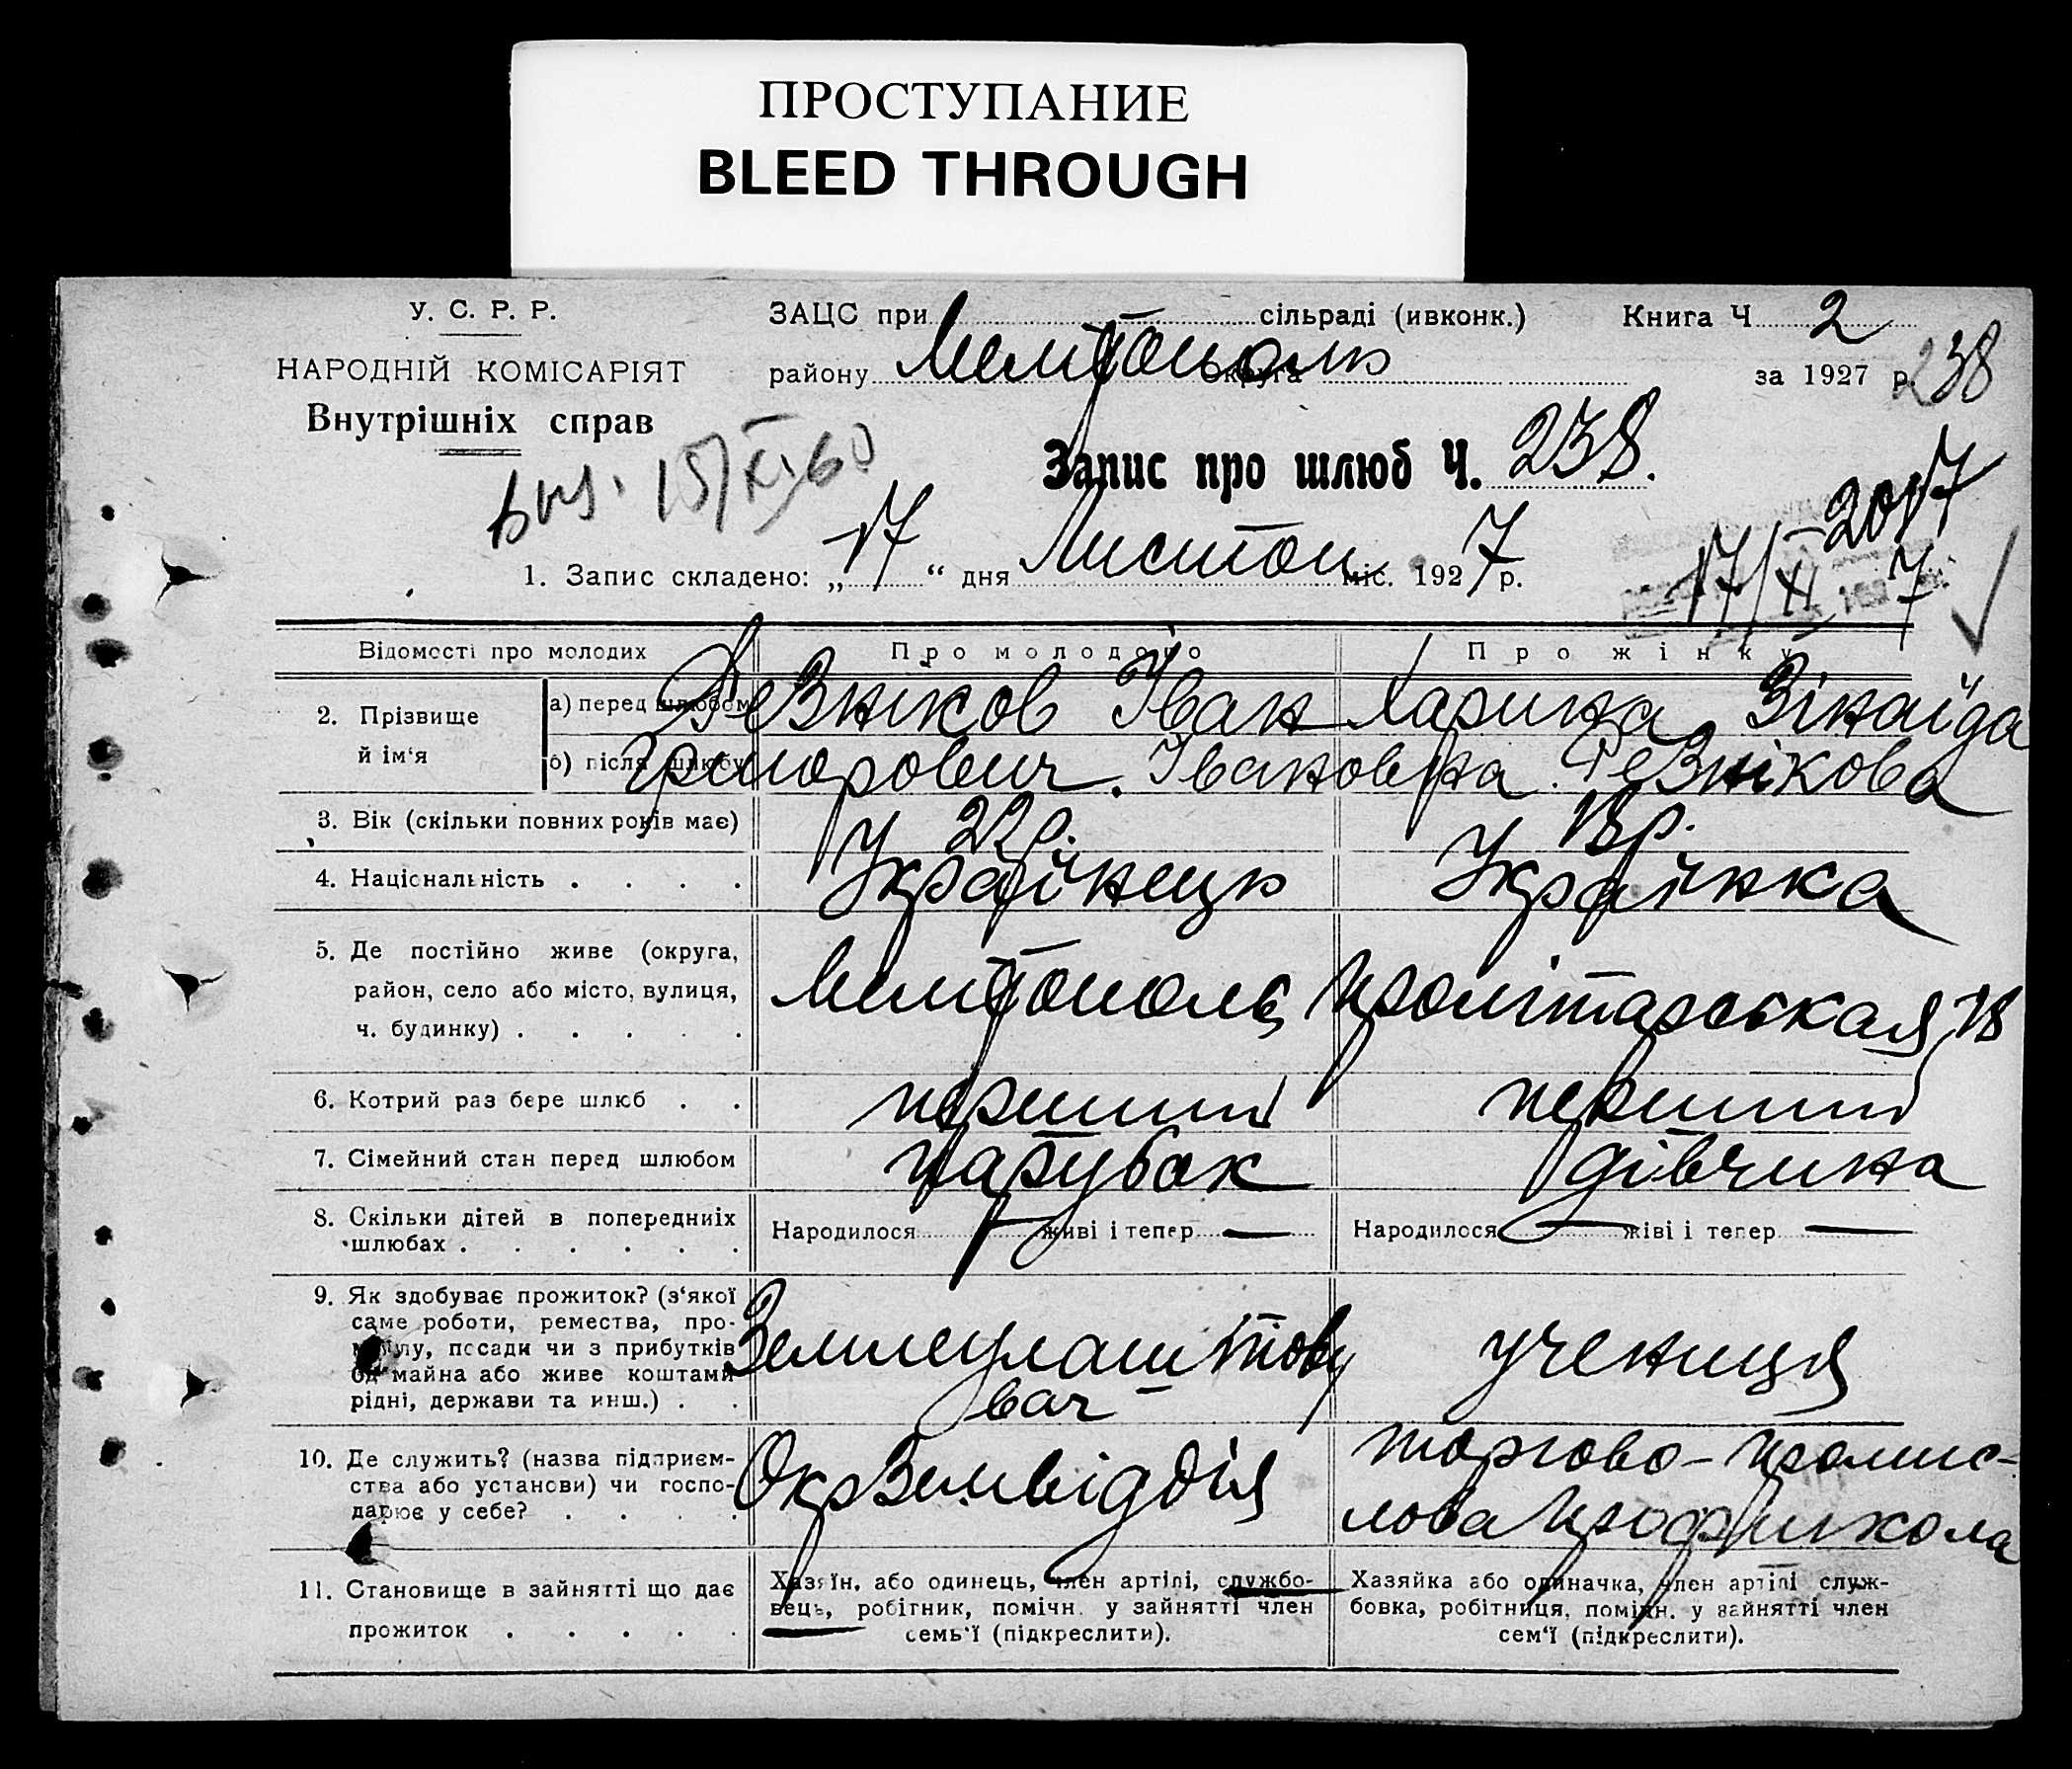 ПРОСТУПАНИЕ
BLEED THROUGH
У. С. Р. Р.
НАРОДНІЙ КОМІСАРІЯТ
Внутрішніх справ
ЗАЦС при сільраді (ивконк.)
району округа
Книга Ч. 2
за 1927 р.
238
Запис про шлюб Ч. 238.
15/XI 60
1. Запис складено: „17“ дня Листоп міс. 1927 р.
17/XI 7
Відомості про молодих
Про молодого
Про жінку
2. Прізвище й ім'я
а) перед шлюбом
б) після шлюбу
Резніков Іван
Григорович.
Харина Зінаїда
Івановна. Резнікова
3. Вік (скільки повних років має)
22 р.
18 р.
4. Національність
Українець
Українка
5. Де постійно живе (округа,
район, село або місто, вулиця,
ч. будинку)
Мелітополь, Пролітарськая, 18
6. Котрий раз бере шлюб
перший
перший
7. Сімейний стан перед шлюбом
Парубок
дівчина
8. Скільки дітей в попередниіх
шлюбах
Народилося — живі і тепер —
Народилося — жіві і тепер —
9. Як здобуває прожиток? (з'якої
саме роботи, ремества, про-
мислу, посади чи з прибутків
од майна або живе коштами
рідні, держави та инш.)
вач
учениця
10. Де служить? (назва підприєм-
ства або установи) чи госпо-
дарює у себе?
ОкрЗемвідділ
торгово-промис-
лова Профшкола
11. Становище в зайнятті що дає
прожиток
Хазяїн, або одинець, член артілі, службо-
вець, робітник, помічн. у зайнятті член
семь'ї (підкреслити).
Хазяйка або одиначка, член артілі служ-
бовка, робітниця, помічн. у зайнятті член
сем'ї (підкреслити).